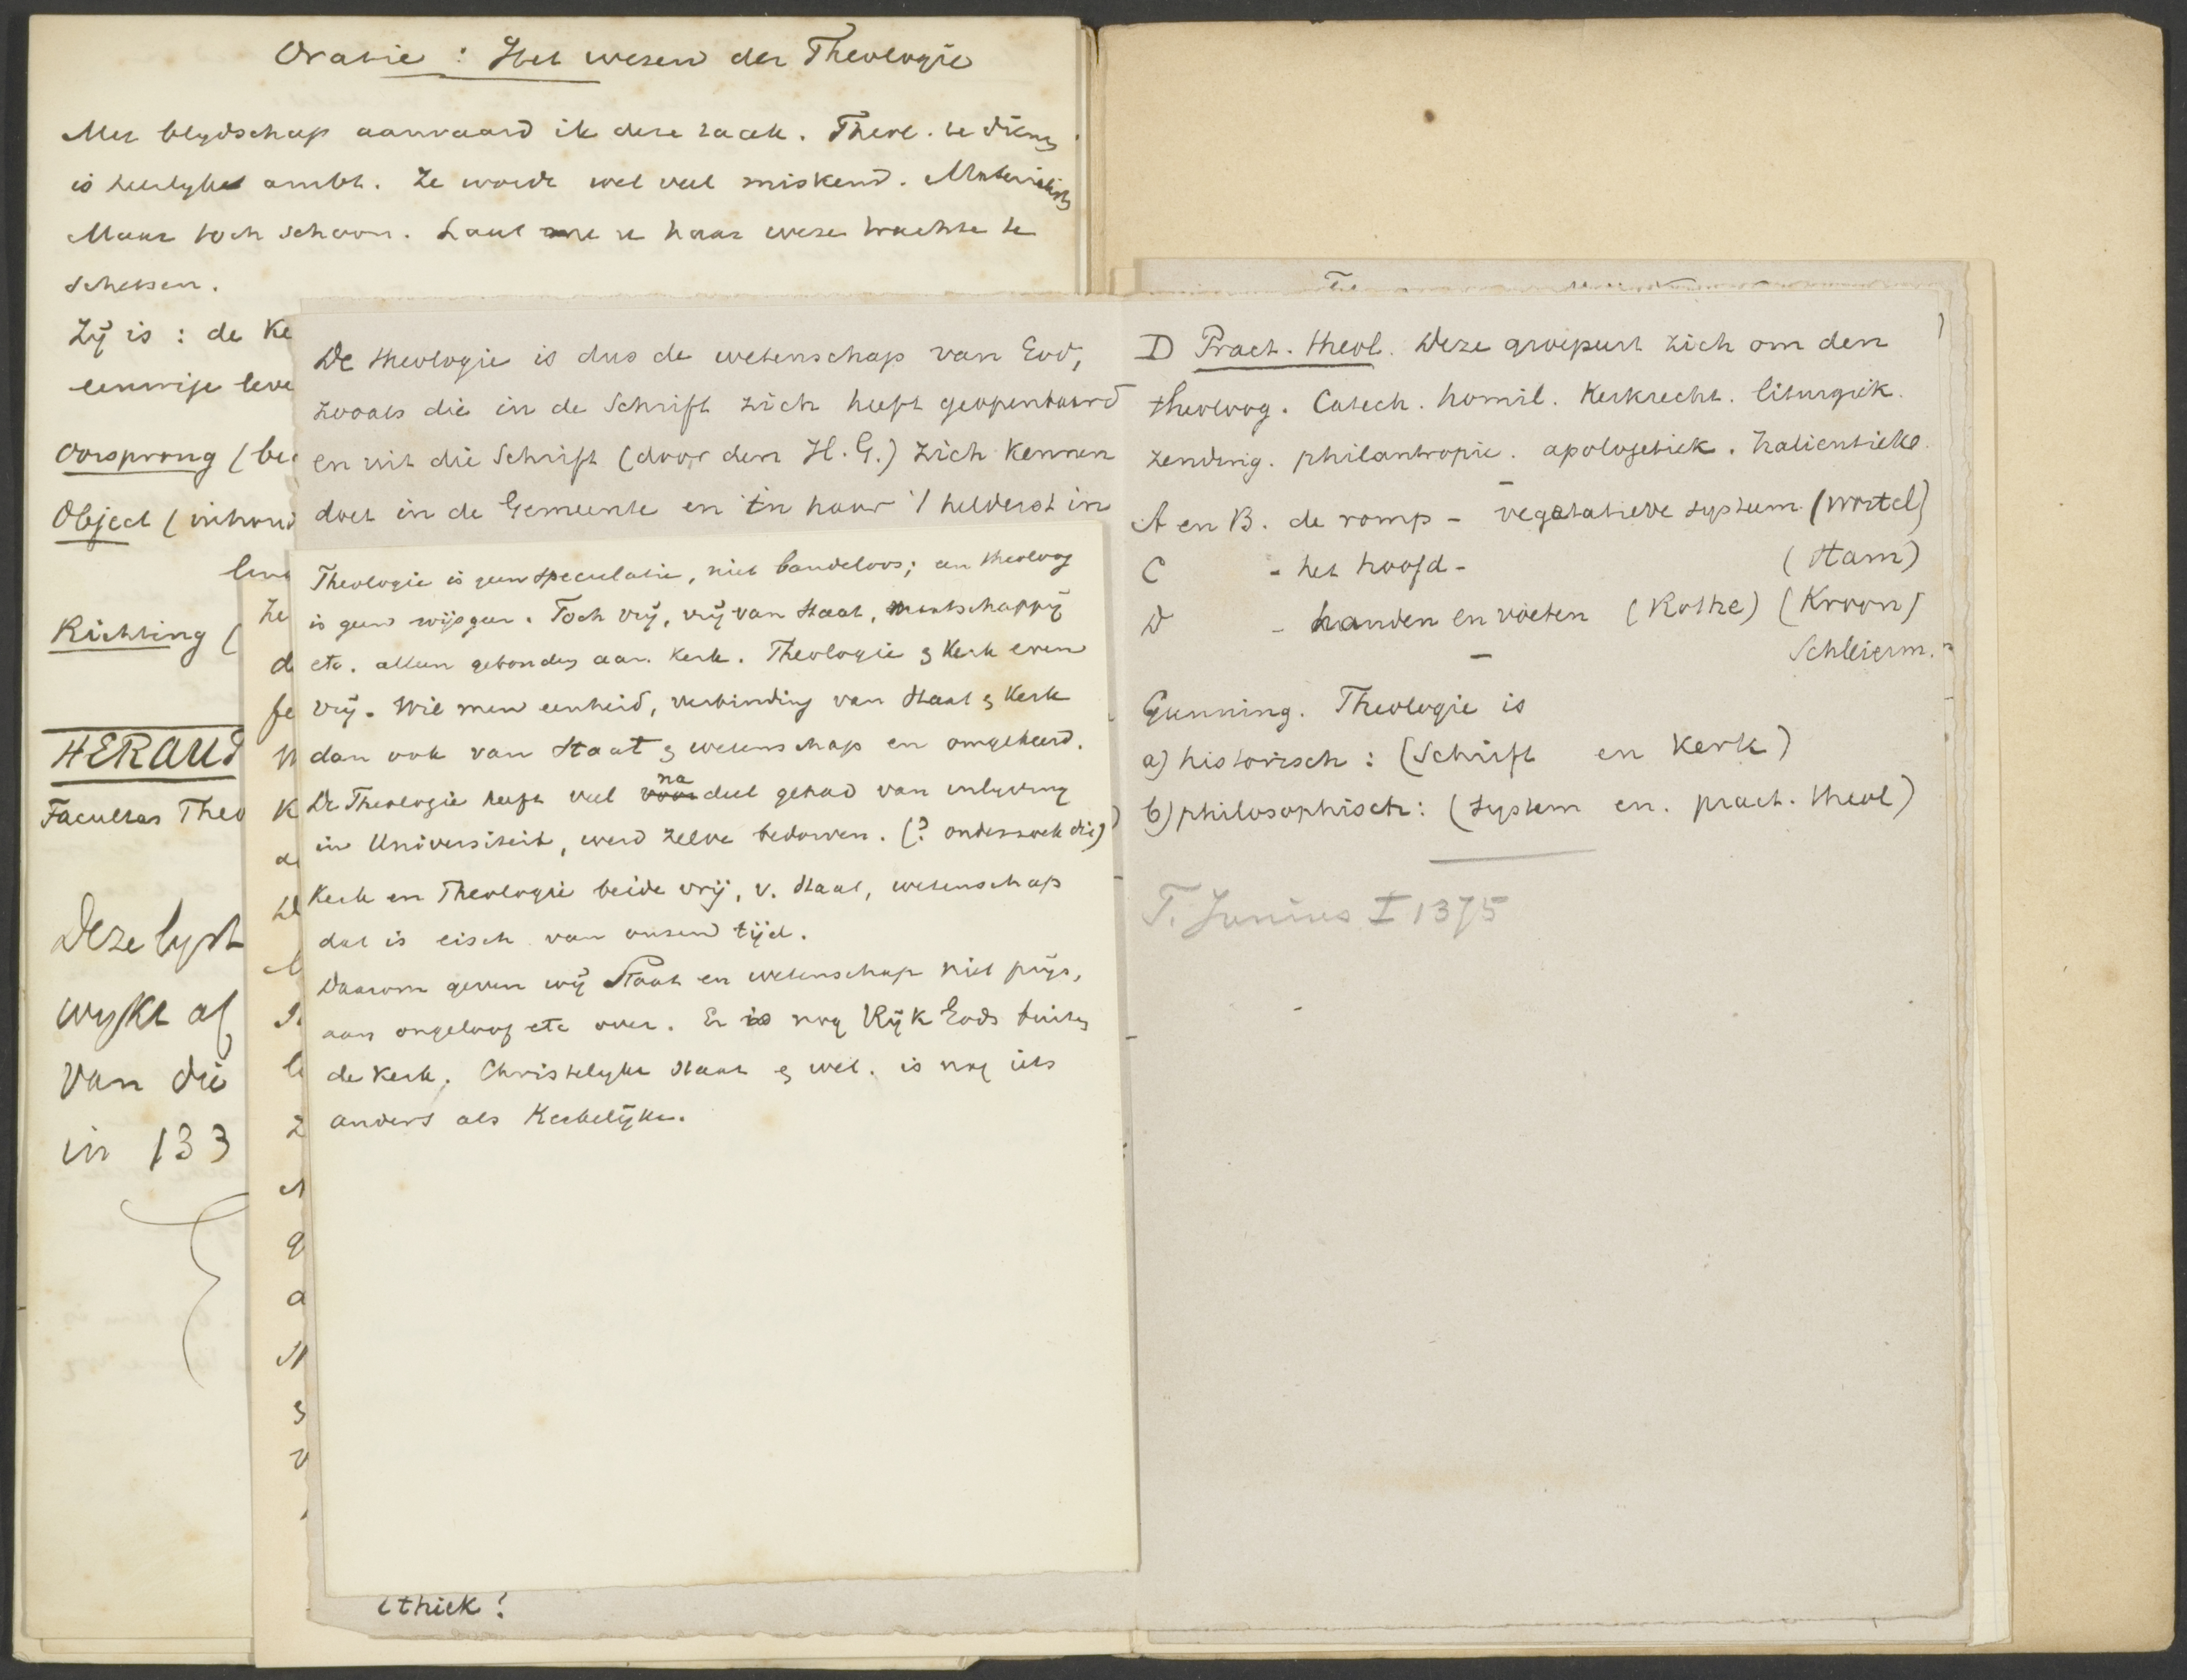 Oratie : Het wesen der Theologie
Met blydschap aanvaard ik deze taak. Theol. te dienen
is heerlyke ambt. Ze wordt wel veel miskend. Materialisten
Maar toch schoon. Laat me u haar weze trachte te
schetsen.
Zij is : de Ke
eenwije leve
Oorsprong (be
Object (inhoud
leve
Richting (
HERAUT
Facultas Theo
Deze lyst
wykt af
van die
in 133
De theologie is dus de wetenschap van God,
zooals die in de Schrift zich heeft geopenbaard
en uit die Schrift (door den H. G.) zich kennen
doet in de Gemeente en in haar 't helderst in
Theologie is geen speculatie, niet bandeloos; een theoloog
is geen wijsgeer. Toch vrij, vrij van Staat, maatschappij
etc. alleen gebonden aan Kerk. Theologie & Kerk even
vrij. Wil men eenheid, verbinding van Staat & Kerk
dan ook van Staat & wetenschap en omgekeerd.
De Theologie heeft veel voor na deel gehad van inlyving
in Universiteit, werd zelve bedorven. (? onderzoek dit)
Kerk en Theologie beide vrij, v. Staat, wetenschap
dat is eisch van onsen tijd.
Daarom geven wij Staat en wetenschap niet prijs,
aan ongeloof etc over. Er is nog Rijk Gods buiten
de Kerk. Christelyke Staat & wet. is nog iets
anders als Kerkelijke.
ethiek!
D Pract. theol. Deze groepeert zich om den
theoloog. Catech. homil. Kerkrecht. liturgiek.
zending. philantropie. apologetiek. halieutieke.
A en B. de romp - vegetatieve systeem (wortel)
C - het hoofd - (Stam)
D - handen en voeten (Rothe) (Kroon)
Schleierm.
Gunning. Theologie is
a) historisch : (Schrift en Kerk)
b) philosophisch : (system en. pract. theol)
F. Junius I 1375